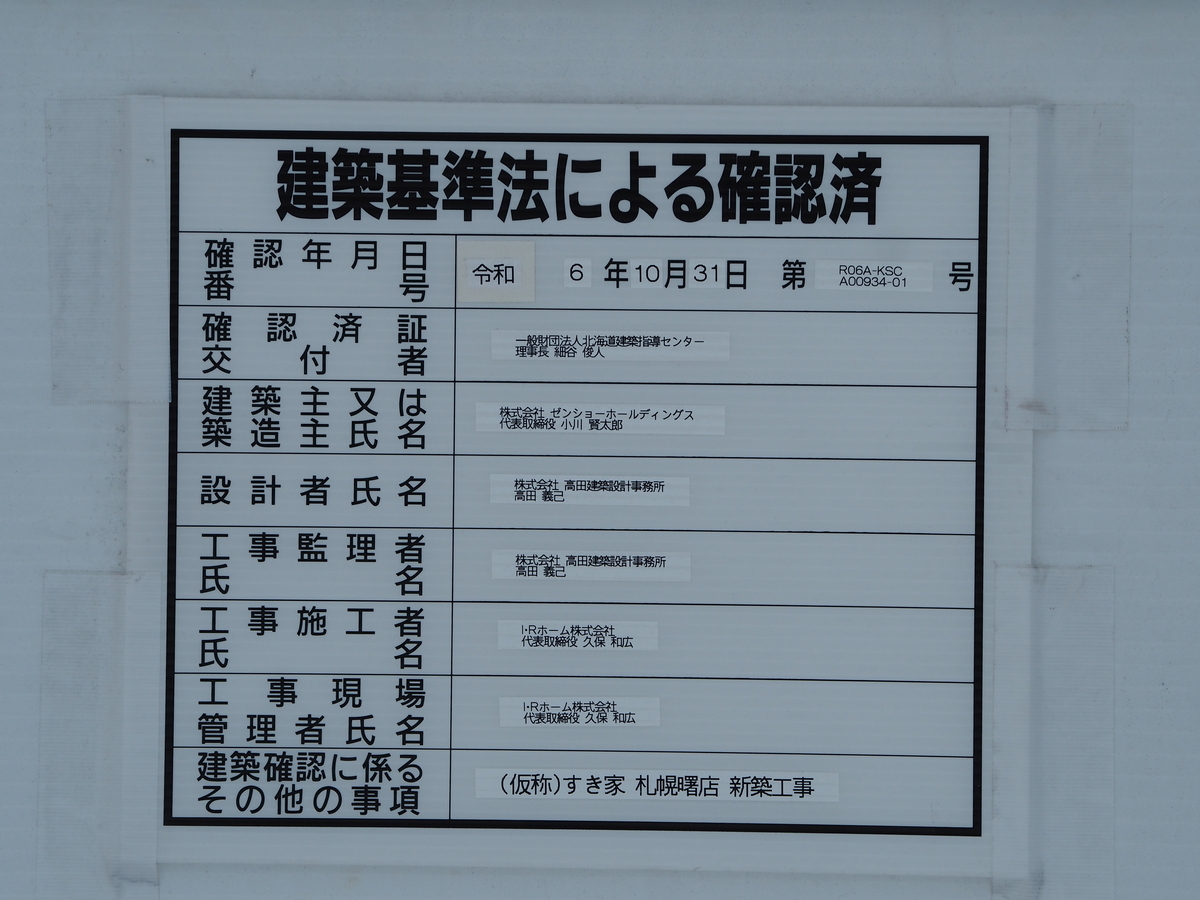 建築基準法による確認済
確認年月日
番号
令和 6 年 10 月 31 日 第 R06A-KSC A00934-01 号
確認済証
交付者
一般財団法人北海道建築指導センター
理事長 細谷 俊人
建築主又は
築造主氏名
株式会社 ゼンショーホールディングス
代表取締役 小川 賢太郎
設計者氏名
株式会社 高田建築設計事務所
高田 義己
工事監理者
氏名
株式会社 高田建築設計事務所
高田 義己
工事施工者
氏名
I・Rホーム株式会社
代表取締役 久保 和広
工事現場
管理者氏名
I・Rホーム株式会社
代表取締役 久保 和広
建築確認に係る
その他の事項
(仮称)すき家 札幌曙店 新築工事